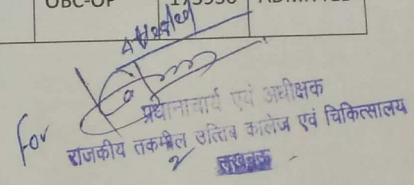 OBC-OP 175950
For
प्रधानाचार्य एवं अधीक्षक
राजकीय तकमील उत्तिब कालेज एवं चिकित्सालय
लखनऊ